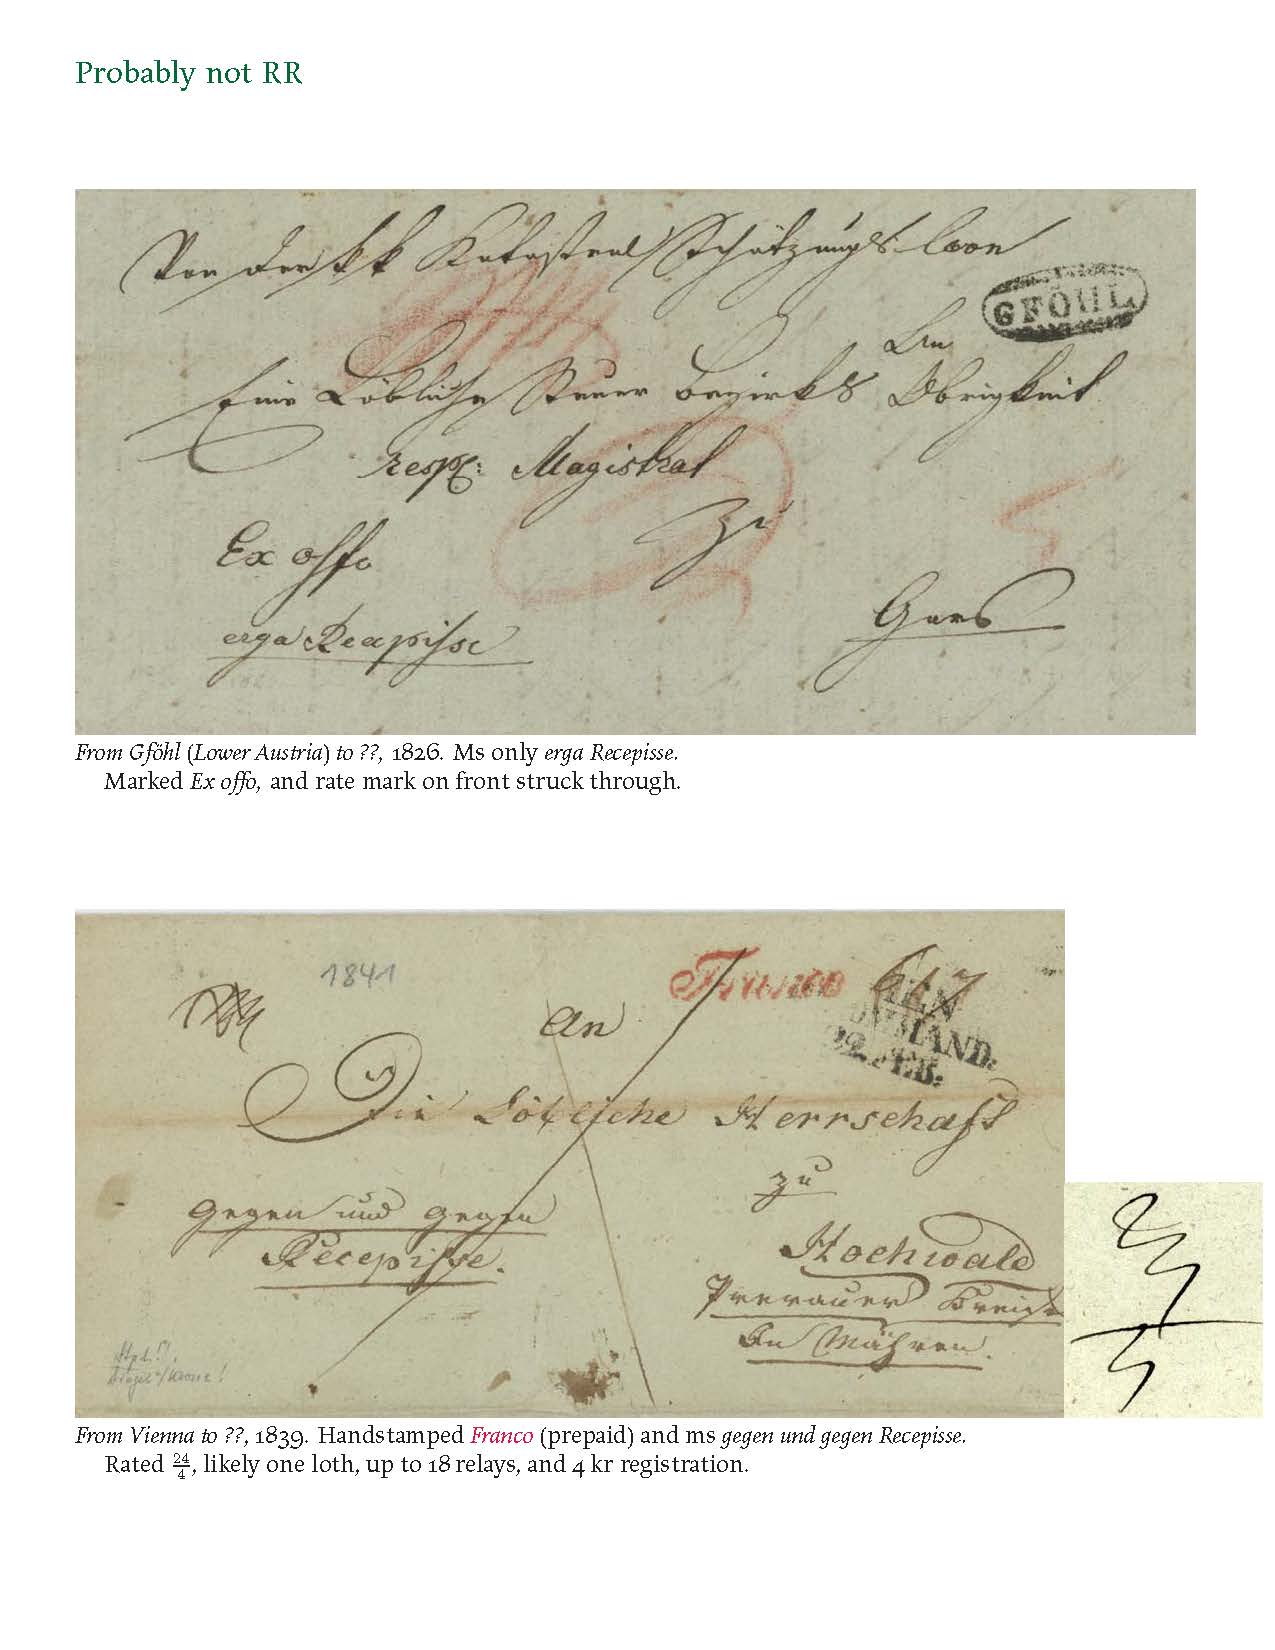 Probably not RR
Von der k k Katastral Schätzungs
GFÖHL
An
Eine Löbliche Steuer Bezirks Obrigkeit
resp: Magistrat
zu
Ex offo
Gars
erga Recepisse
From Gföhl (Lower Austria) to ??, 1826. Ms only erga Recepisse.
Marked Ex offo, and rate mark on front struck through.
1841
Franco
WIEN
22. FEB:
An
Die Löbliche Herrschaft
zu
gegen und gegen
Recepisse.
Hochwald
Prerauer Kreis
In Mähren.
24
4
From Vienna to ??, 1839. Handstamped Franco (prepaid) and ms gegen und gegen Recepisse.
Rated 24/4, likely one loth, up to 18 relays, and 4 kr registration.